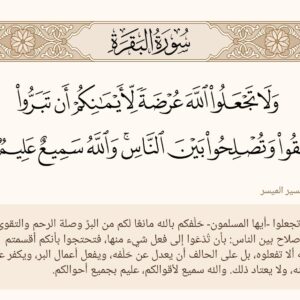 سُورَةُ البَقَرَةِ
وَلَا تَجْعَلُوا۟ ٱللَّهَ عُرْضَةً لِّأَيْمَـٰنِكُمْ أَن تَبَرُّوا۟
قُوا۟ وَتُصْلِحُوا۟ بَيْنَ ٱلنَّاسِ ۗ وَٱللَّهُ سَمِيعٌ عَلِيمٌ
سير الميسر
تجعلوا -أيها المسلمون- حَلْفكم بالله مانعًا لكم من البرِّ وصلة الرحم والتقوى
صلاح بين الناس: بأن تُدْعَوا إلى فعل شيء منها، فتحتجوا بأنكم أقسمتم
لله ألا تفعلوه، بل على الحالف أن يعدل عن حَلْفه، ويفعل أعمال البر، ويكفر ع
نه، ولا يعتاد ذلك. والله سميع لأقوالكم، عليم بجميع أحوالكم.